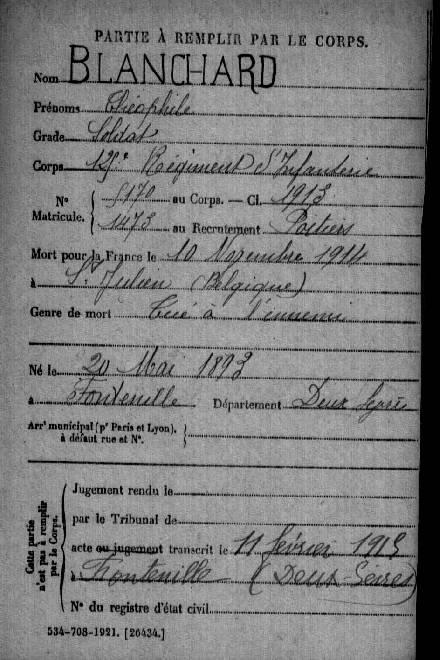 PARTIE À REMPLIR PAR LE CORPS.
Nom BLANCHARD
Prénoms Théophile
Grade Soldat
Corps 125e Régiment d'Infanterie
N° Matricule. { 5170 au Corps. — Cl. 1913
1473 au Recrutement Poitiers
Mort pour la France le 10 Novembre 1914
à St Julien (Belgique)
Genre de mort Tué à l'ennemi
Né le 20 Mai 1893
à Fontenille Département Deux Sèvres
Arrt municipal (pr Paris et Lyon), à défaut rue et N°. }
Cette partie n'est pas à remplir par le Corps. {
Jugement rendu le
par le Tribunal de
acte ou jugement transcrit le 11 février 1915
à Fontenille (Deux-Sèvres)
N° du registre d'état civil
534-708-1921. [26434.]